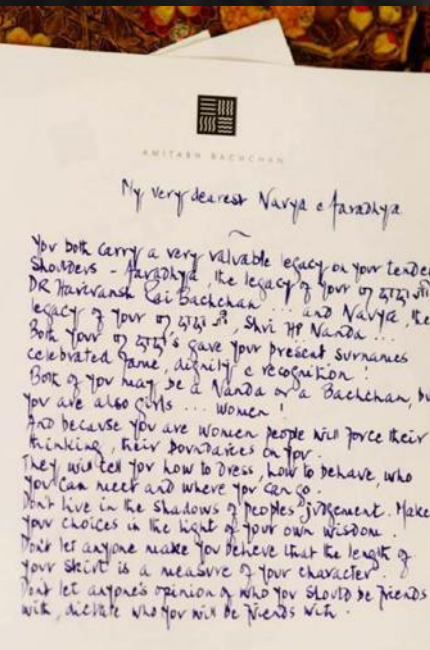 AMITABH BACHCHAN
My very dearest Navya e Aaradhya
You both carry a very valuable legacy on your tender
Shoulders - Aaradhya, the legacy of your दादा जी
DR Harivansh Rai Bachchan ... and Navya, the
legacy of your दादा जी, Shri HP Nanda ...
Both your दादा जी's gave your present surnames
celebrated fame, dignity e recognition!
Both of you may be a Nanda or a Bachchan, bu
you are also girls ... women!
And because you are women people will force their
thinking, their boundaries on you.
They will tell you how to dress, how to behave, who
you can meet and where you can go.
Don't live in the shadows of people's judgement. Make
your choices in the light of your own wisdom.
Don't let anyone make you believe that the length of
your skirt is a measure of your character.
Don't let anyone's opinion of who you should be friends
with, dictate who you will be friends with.